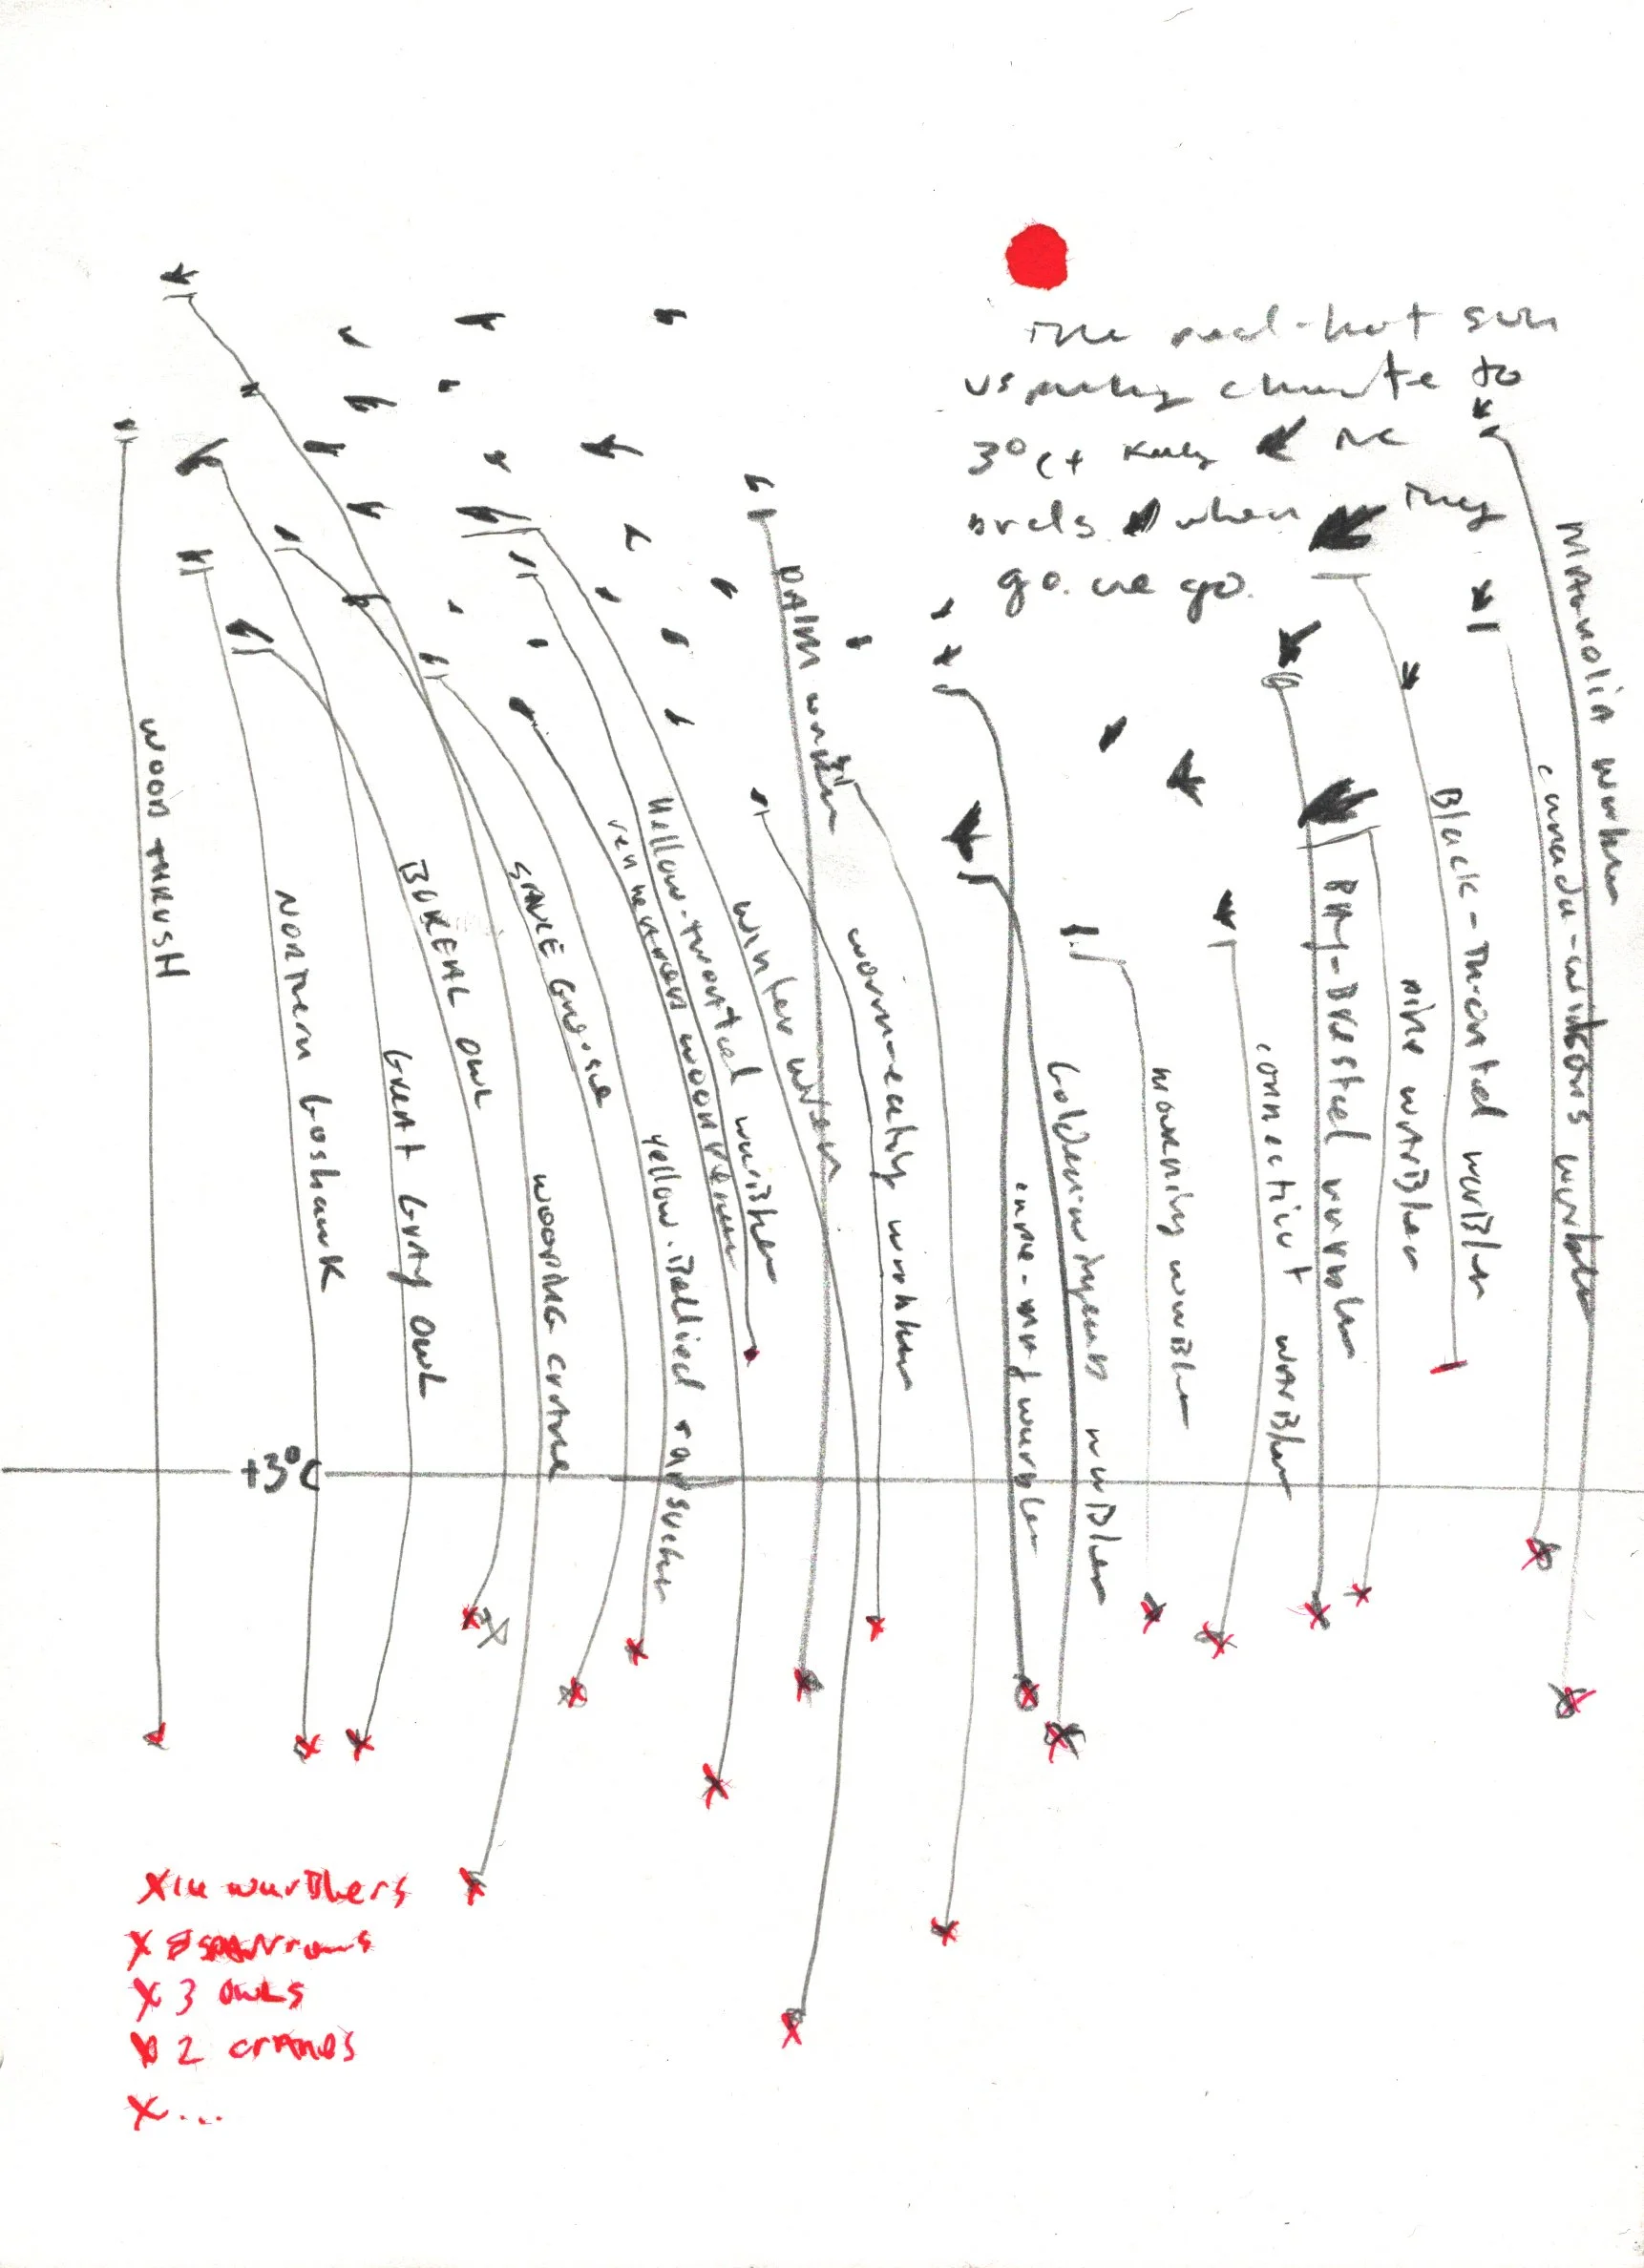 The red-hot sun
us pushing climate to
3°C+ kills the
birds. when they
go. we go.
WOOD THRUSH
NORTHERN GOSHAWK
GREAT GRAY OWL
BOREAL OWL
WOOPING CRANE
YELLOW-BELLIED SAPSUCKER
YELLOW-THROATED WARBLER
WINTER WREN
PALM WARBLER
worm-eating warbler
CAPE-MAY warbler
GOLDEN-winged WARBLER
MOURNING WARBLER
CONNECTICUT WARBLER
BAY-BREASTED WARBLER
PINE WARBLER
BLACK-THROATED WARBLER
MAGNOLIA warbler
+3°C
X 3 OWLS
2 CRANES
X...